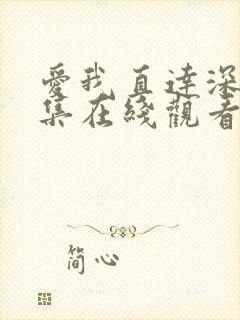 愛我直達深
集在綫觀看
简心